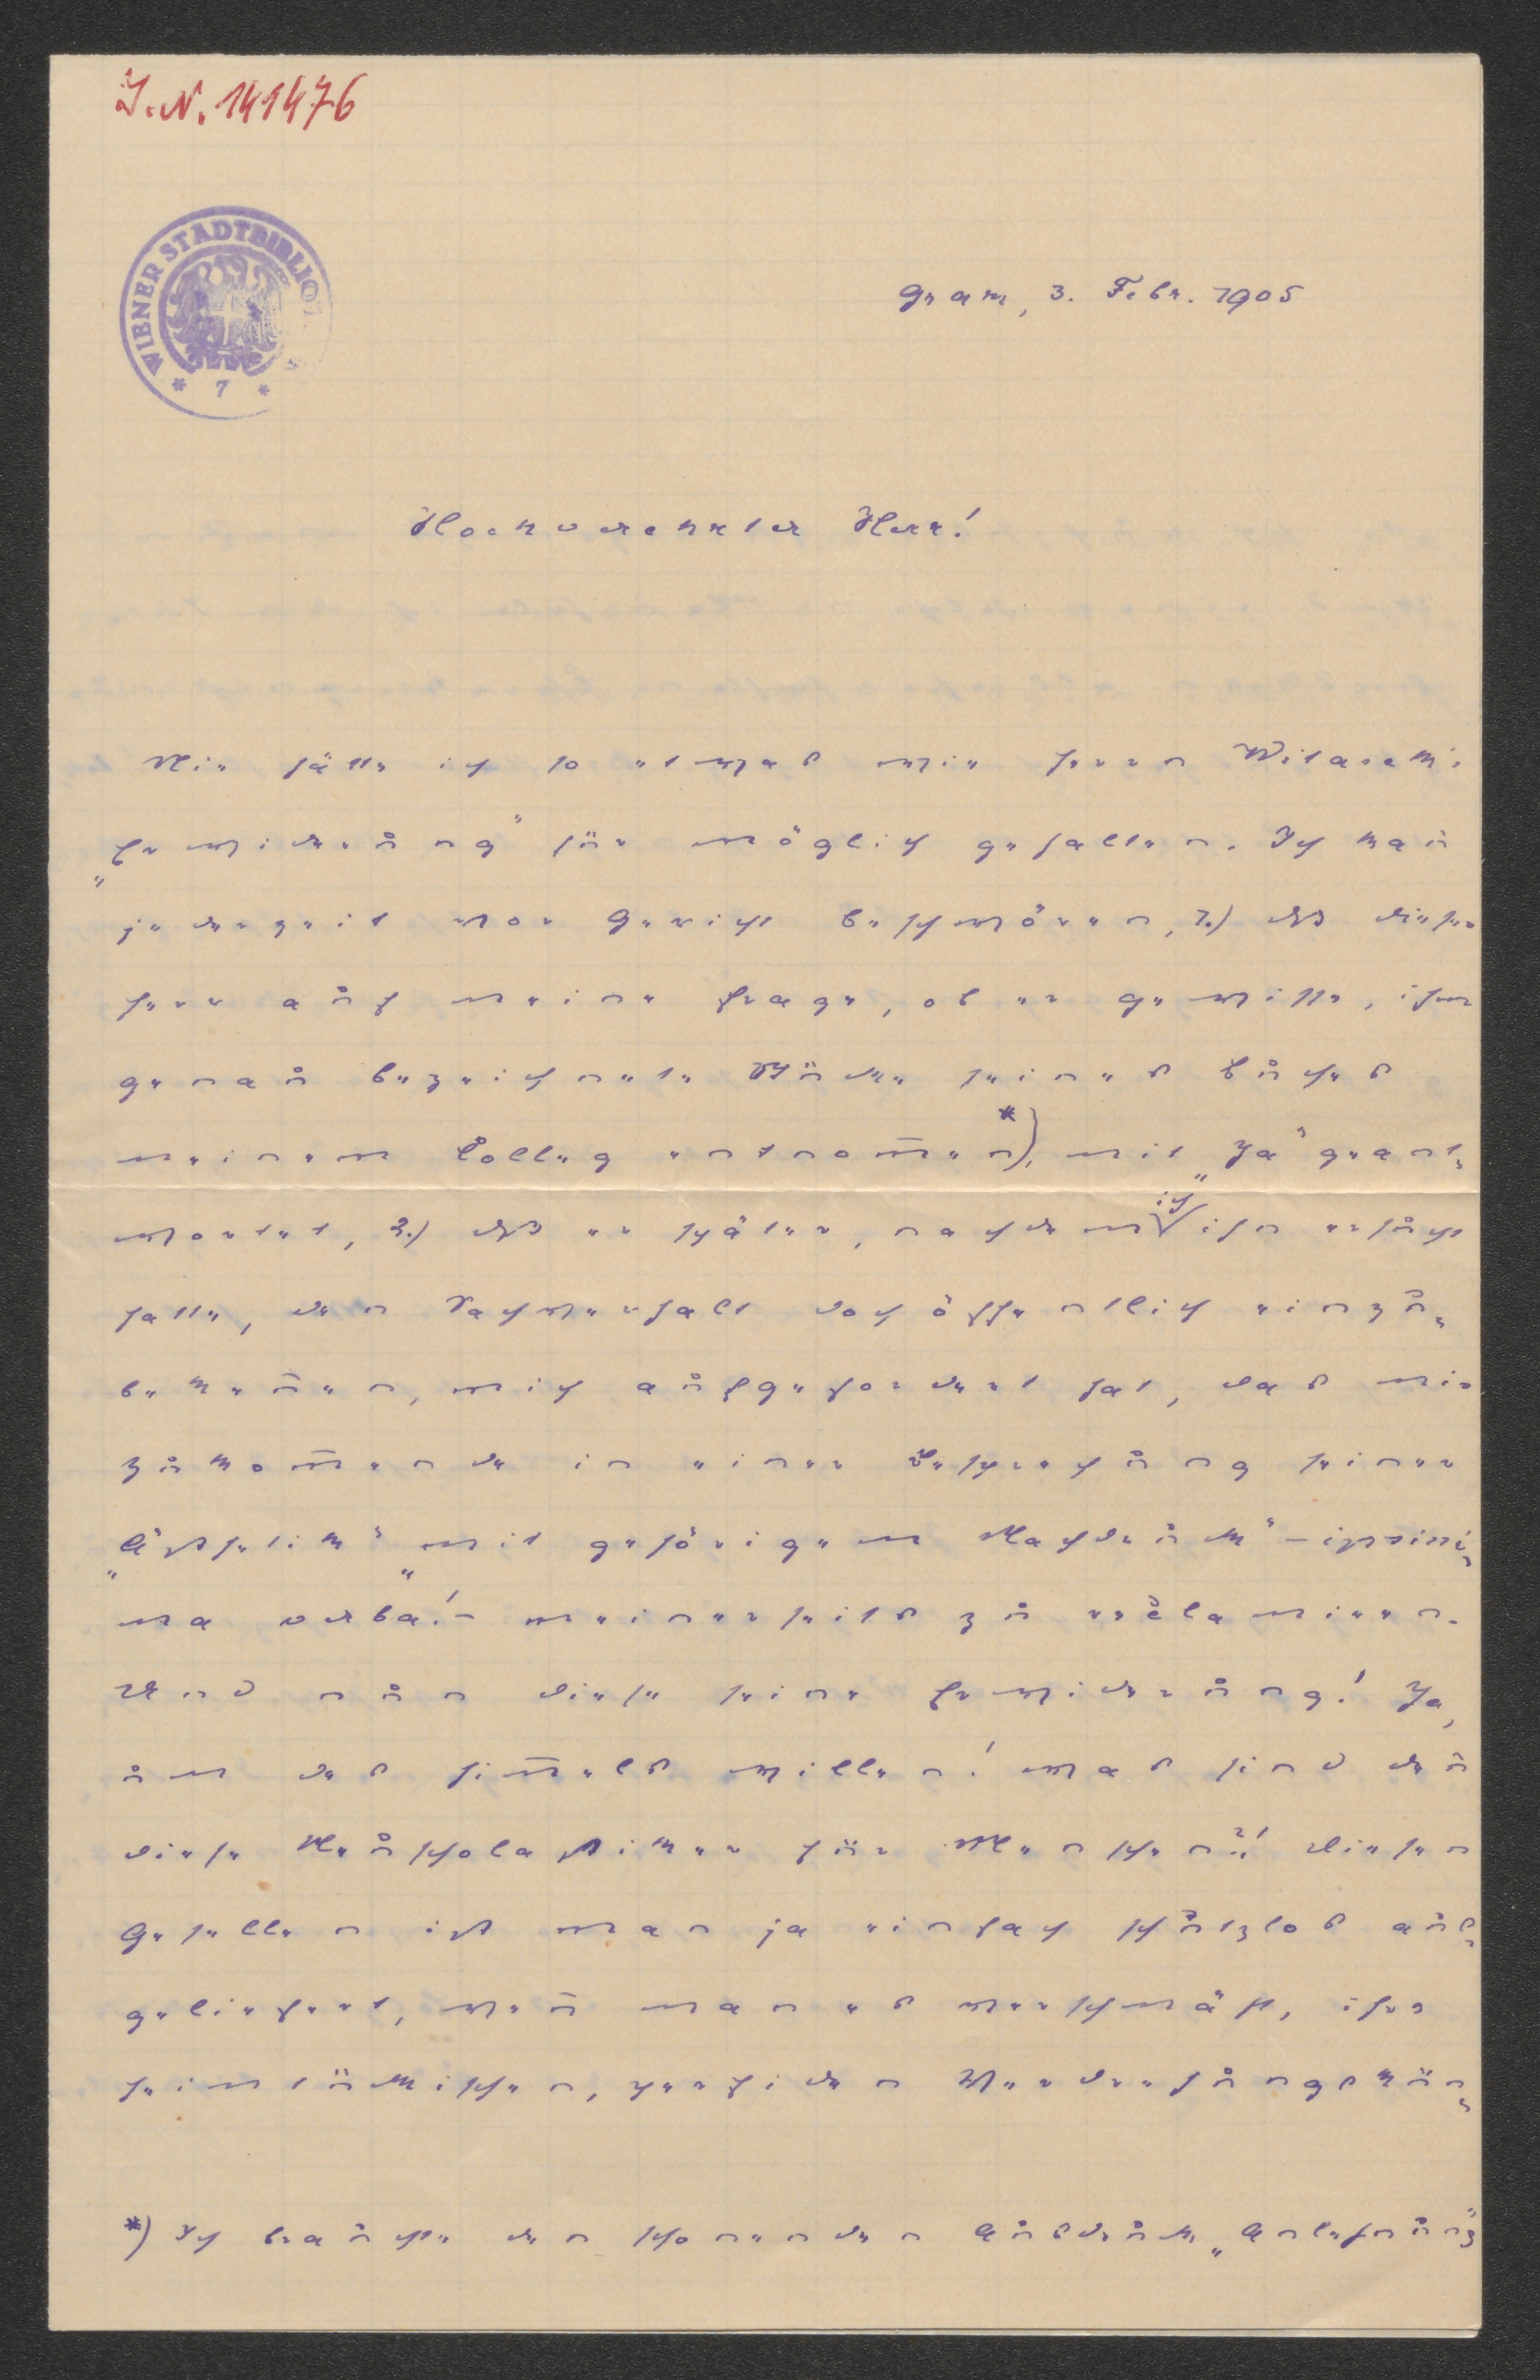 J. N. 141476
WIENER STADTBIBLIO
* 7 *
Graz, 3. Febr. 1905
Hochverehrter Herr!
Nie hätte ich so etwas wie Herrn Witaseks
„Erwiderung" für möglich gehalten. Ich kan̄
jederzeit vor Gericht beschwören, 1.) dß dieser
Herr auf meine Frage, ob er gewisse, ihm
genau bezeichnete Stücke seines Buches
meinem Colleg entnom̄en*), mit „Ja" geant-
wortet, 2.) dß er später, nachdem ich ihn ersucht
hatte, den Sachverhalt doch öffentlich einzu-
beken̄en, mich aufgefordert hat, das mir
zukom̄ende in einer Besprechung seiner
„Ästhetik" „mit gehörigem Nachdruck" – ipsissi-
ma verba! – meinerseits zu reclamieren.
Und nun diese seine Erwiderung! Ja,
um des Him̄els willen! was sind den̄
diese Neuscholastiker für Menschen?! Diesen
Gesellen ist man ja einfach schutzlos aus-
geliefert, wen̄ man es verschmäht, ihre
heimtückischen, perfiden Verdrehungskün-
*) Ich brauchte den schonenden Ausdruck „Anlehnung"